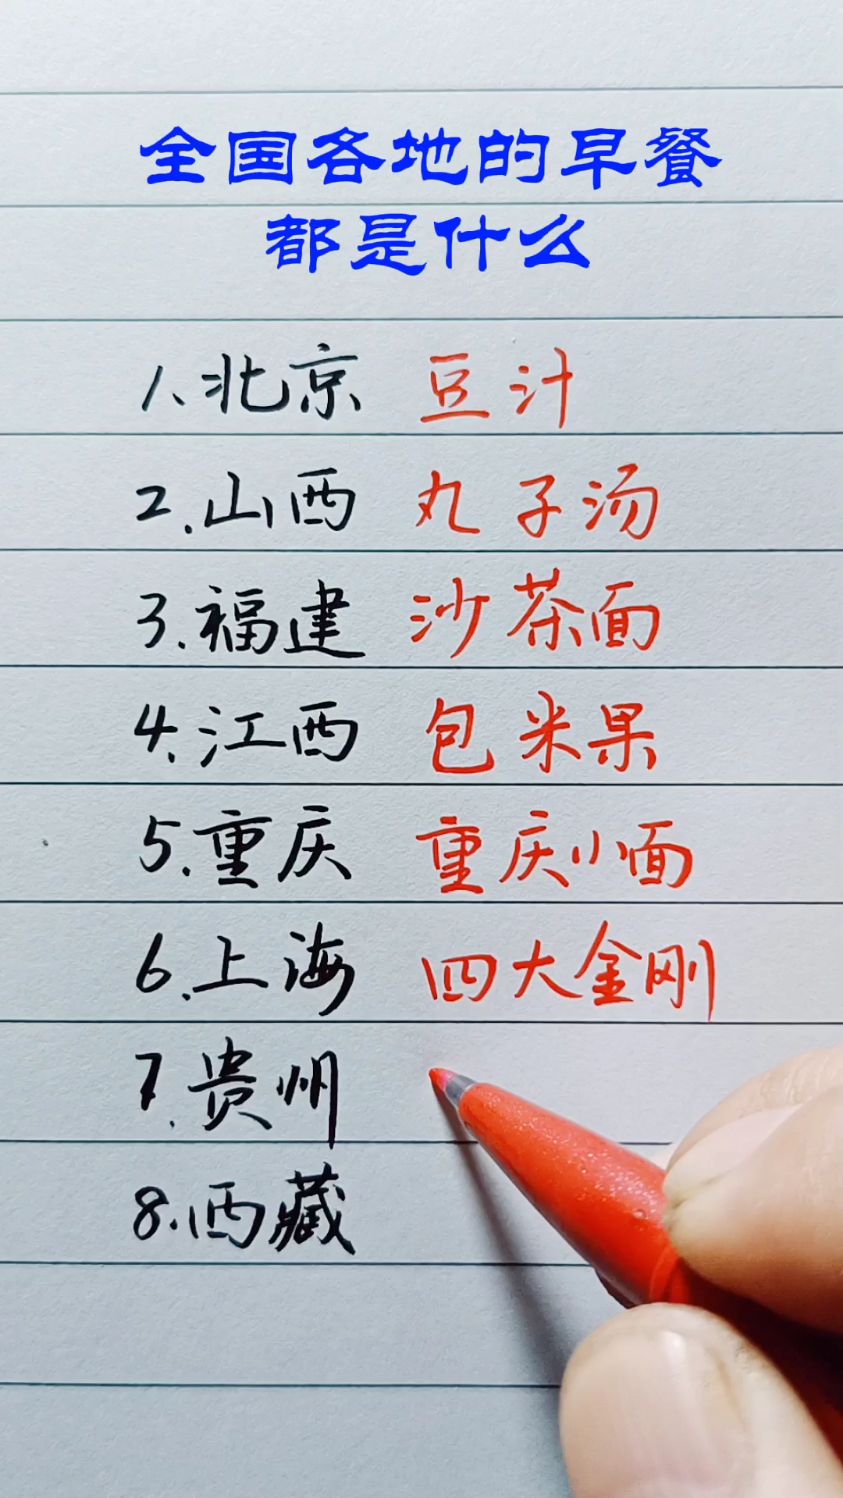 全国各地的早餐
都是什么
1、北京 豆汁
2.山西 丸子汤
3.福建 沙茶面
4、江西 包米果
5.重庆 重庆小面
6.上海 四大金刚
7.贵州
8.西藏